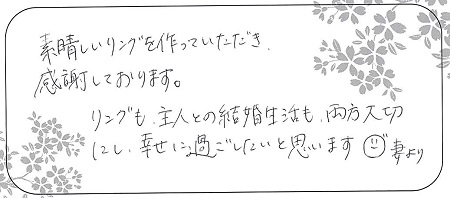 素晴しいリングを作っていただき、
感謝しております。
リングも、主人との結婚生活も、両方大切
にし、幸せに過ごしたいと思います 妻より